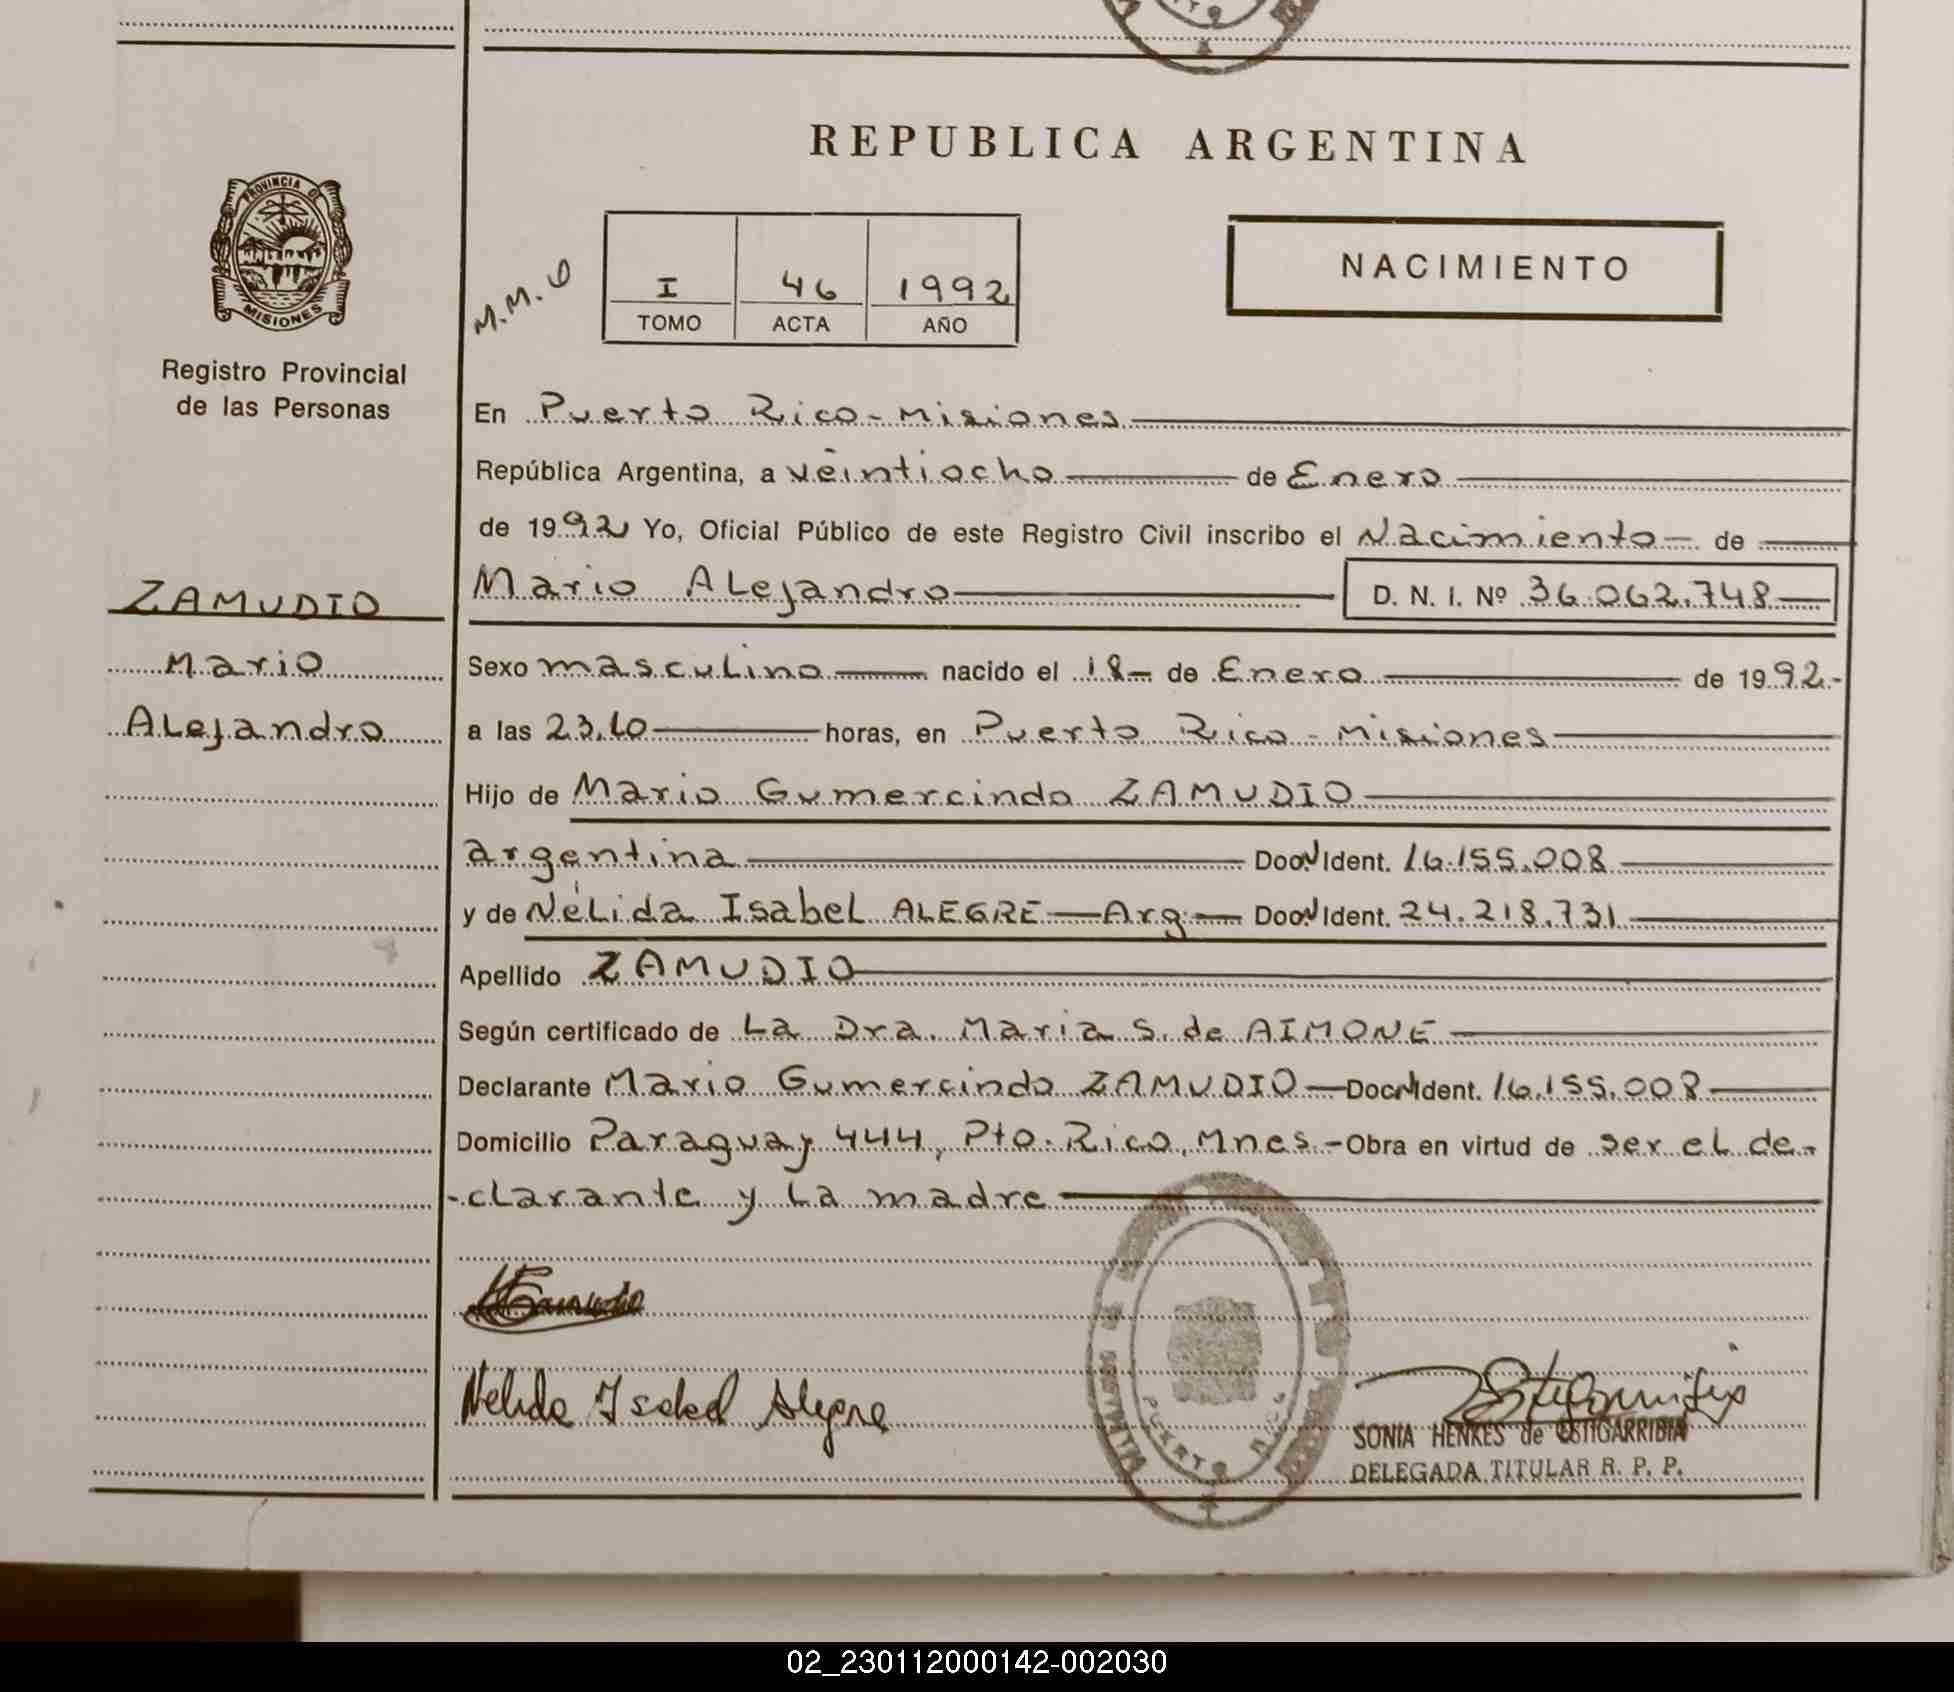 REPUBLICA ARGENTINA
PROVINCIA DE
MISIONES
Registro Provincial
de las Personas
M.M.
I 46 1992
TOMO ACTA AÑO
NACIMIENTO
En Puerto Rico - Misiones
República Argentina, a veintiocho de Enero
de 1992 Yo, Oficial Público de este Registro Civil inscribo el Nacimiento de
ZAMUDIO
Mario Alejandro D. N. I. Nº 36.062.748
Mario
Sexo masculino nacido el 18 de Enero de 1992.-
Alejandro
a las 23,10 horas, en Puerto Rico - Misiones
Hijo de Mario Gumercindo ZAMUDIO
argentina Doc. Ident. 16.155.008
y de Nélida Isabel ALEGRE - Arg - Doc. Ident. 24.218.731
Apellido ZAMUDIO
Según certificado de La Dra. Maria S. de AIMONE
Declarante Mario Gumercindo ZAMUDIO - Doc. Ident. 16.155.008
Domicilio Paraguay 444, Pto. Rico, Mnes. - Obra en virtud de ser el de-
-clarante y La madre
Nelida Isabel Alegre
PUERTO RICO
SONIA HENKES de ESTIGARRIBIA
DELEGADA TITULAR R. P. P.
02_230112000142-002030